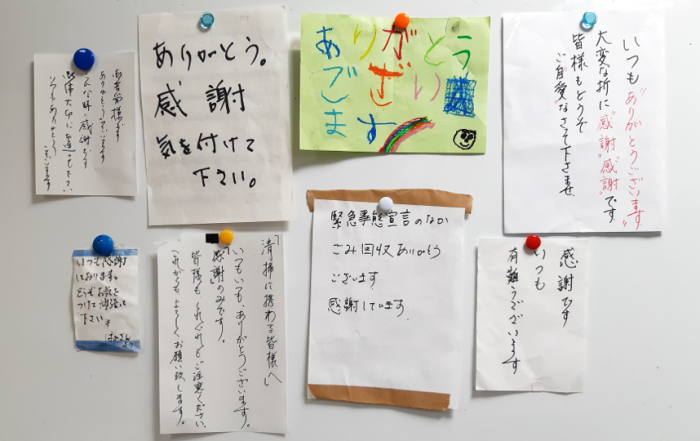 ありがとうございます
こんな時に感謝です
いつもありがとう
ございます
ありがとう。
感謝
気を付けて
下さい。
ありがとう
ございます
いつも"ありがとうございます"
大変な折に"感謝""感謝"です
皆様もどうぞ
ご自愛なさって下さませ
いつも感謝
しております。
どうぞお気を
つけて
下さい。
「清掃に携わる皆様へ」
いつもいつも、ありがとうございます。
感謝のみです。
皆様もくれぐれもご注意ください。
これからもよろしくお願い致します。
緊急事態宣言のなか
ごみ回収ありがとう
ございます
感謝しています.
感謝です
いつも
有難うございます